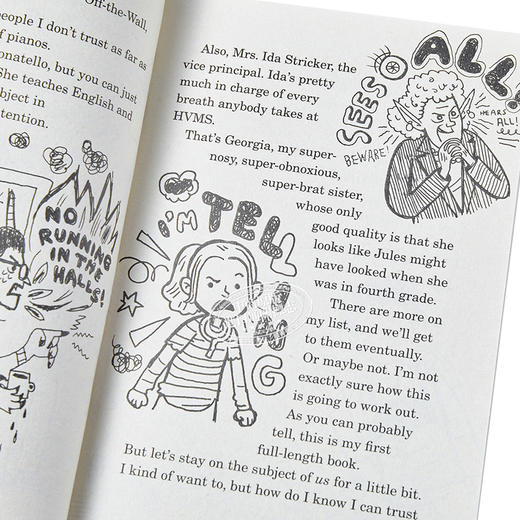 Off-the-Wall,
people I don't trust as far as
of pianos.
onatello, but you can just
She teaches English and
bject in
tention.
NO
RUNNING
IN THE
HALLS!
Also, Mrs. Ida Stricker, the
vice principal. Ida's pretty
much in charge of every
breath anybody takes at
HVMS.
SEES ALL!
HEARS
ALL!
BEWARE!
That's Georgia, my super-
nosy, super-obnoxious,
super-brat sister,
whose only
good quality is that she
looks like Jules might
have looked when she
was in fourth grade.
I'M TELLING
There are more on
my list, and we'll get
to them eventually.
Or maybe not. I'm not
exactly sure how this
is going to work out.
As you can probably
tell, this is my first
full-length book.
But let's stay on the subject of us for a little bit.
I kind of want to, but how do I know I can trust